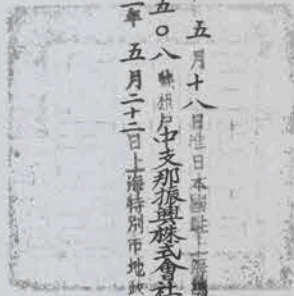 五月十八日准日本國駐上海總
五〇八號租戶中支那振興株式會社
一年五月二十二日上海特別市地政